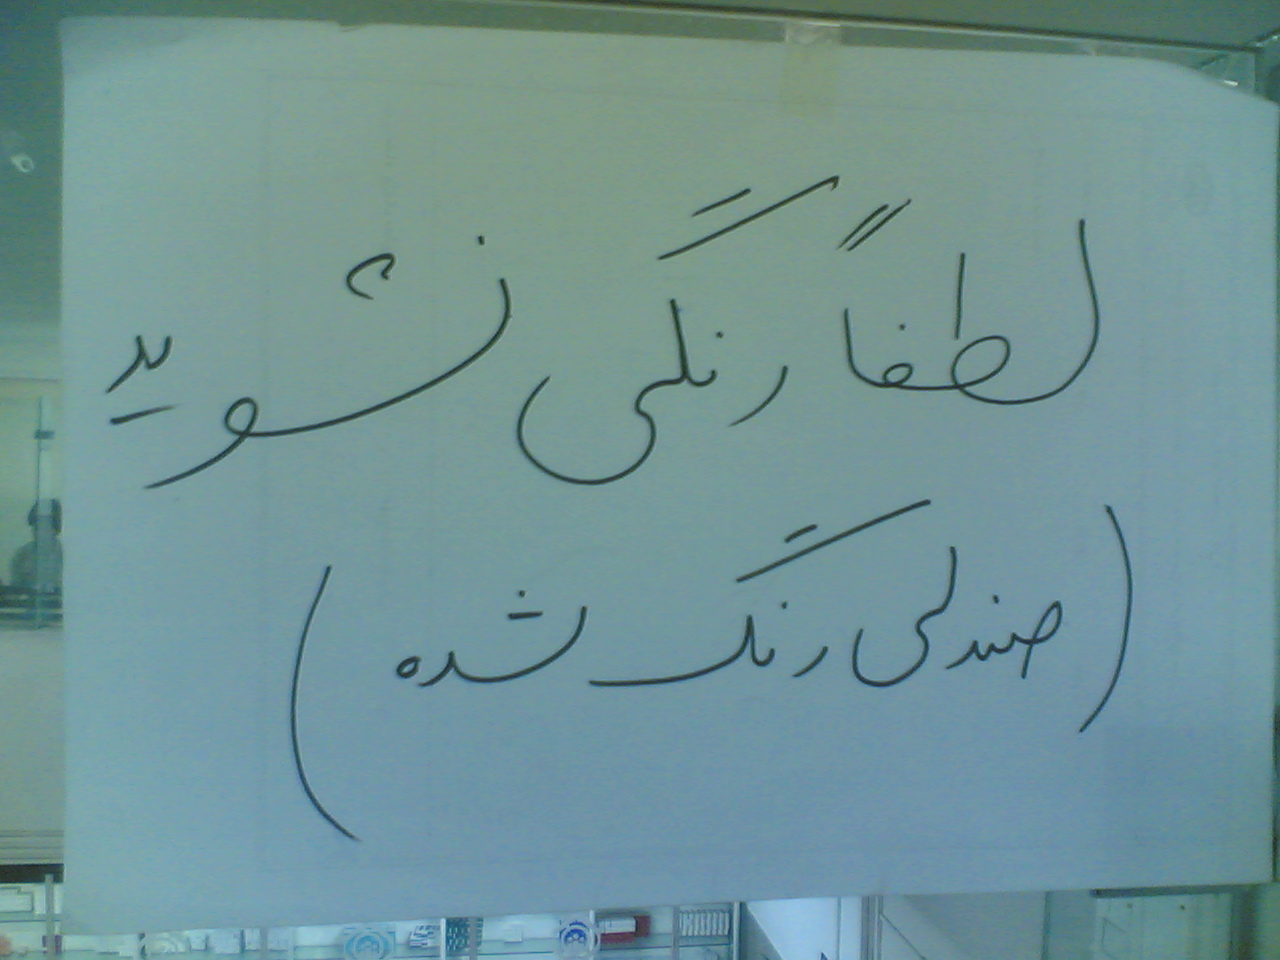 لطفاً رنگی نشوید
(صندلی رنگ شده)